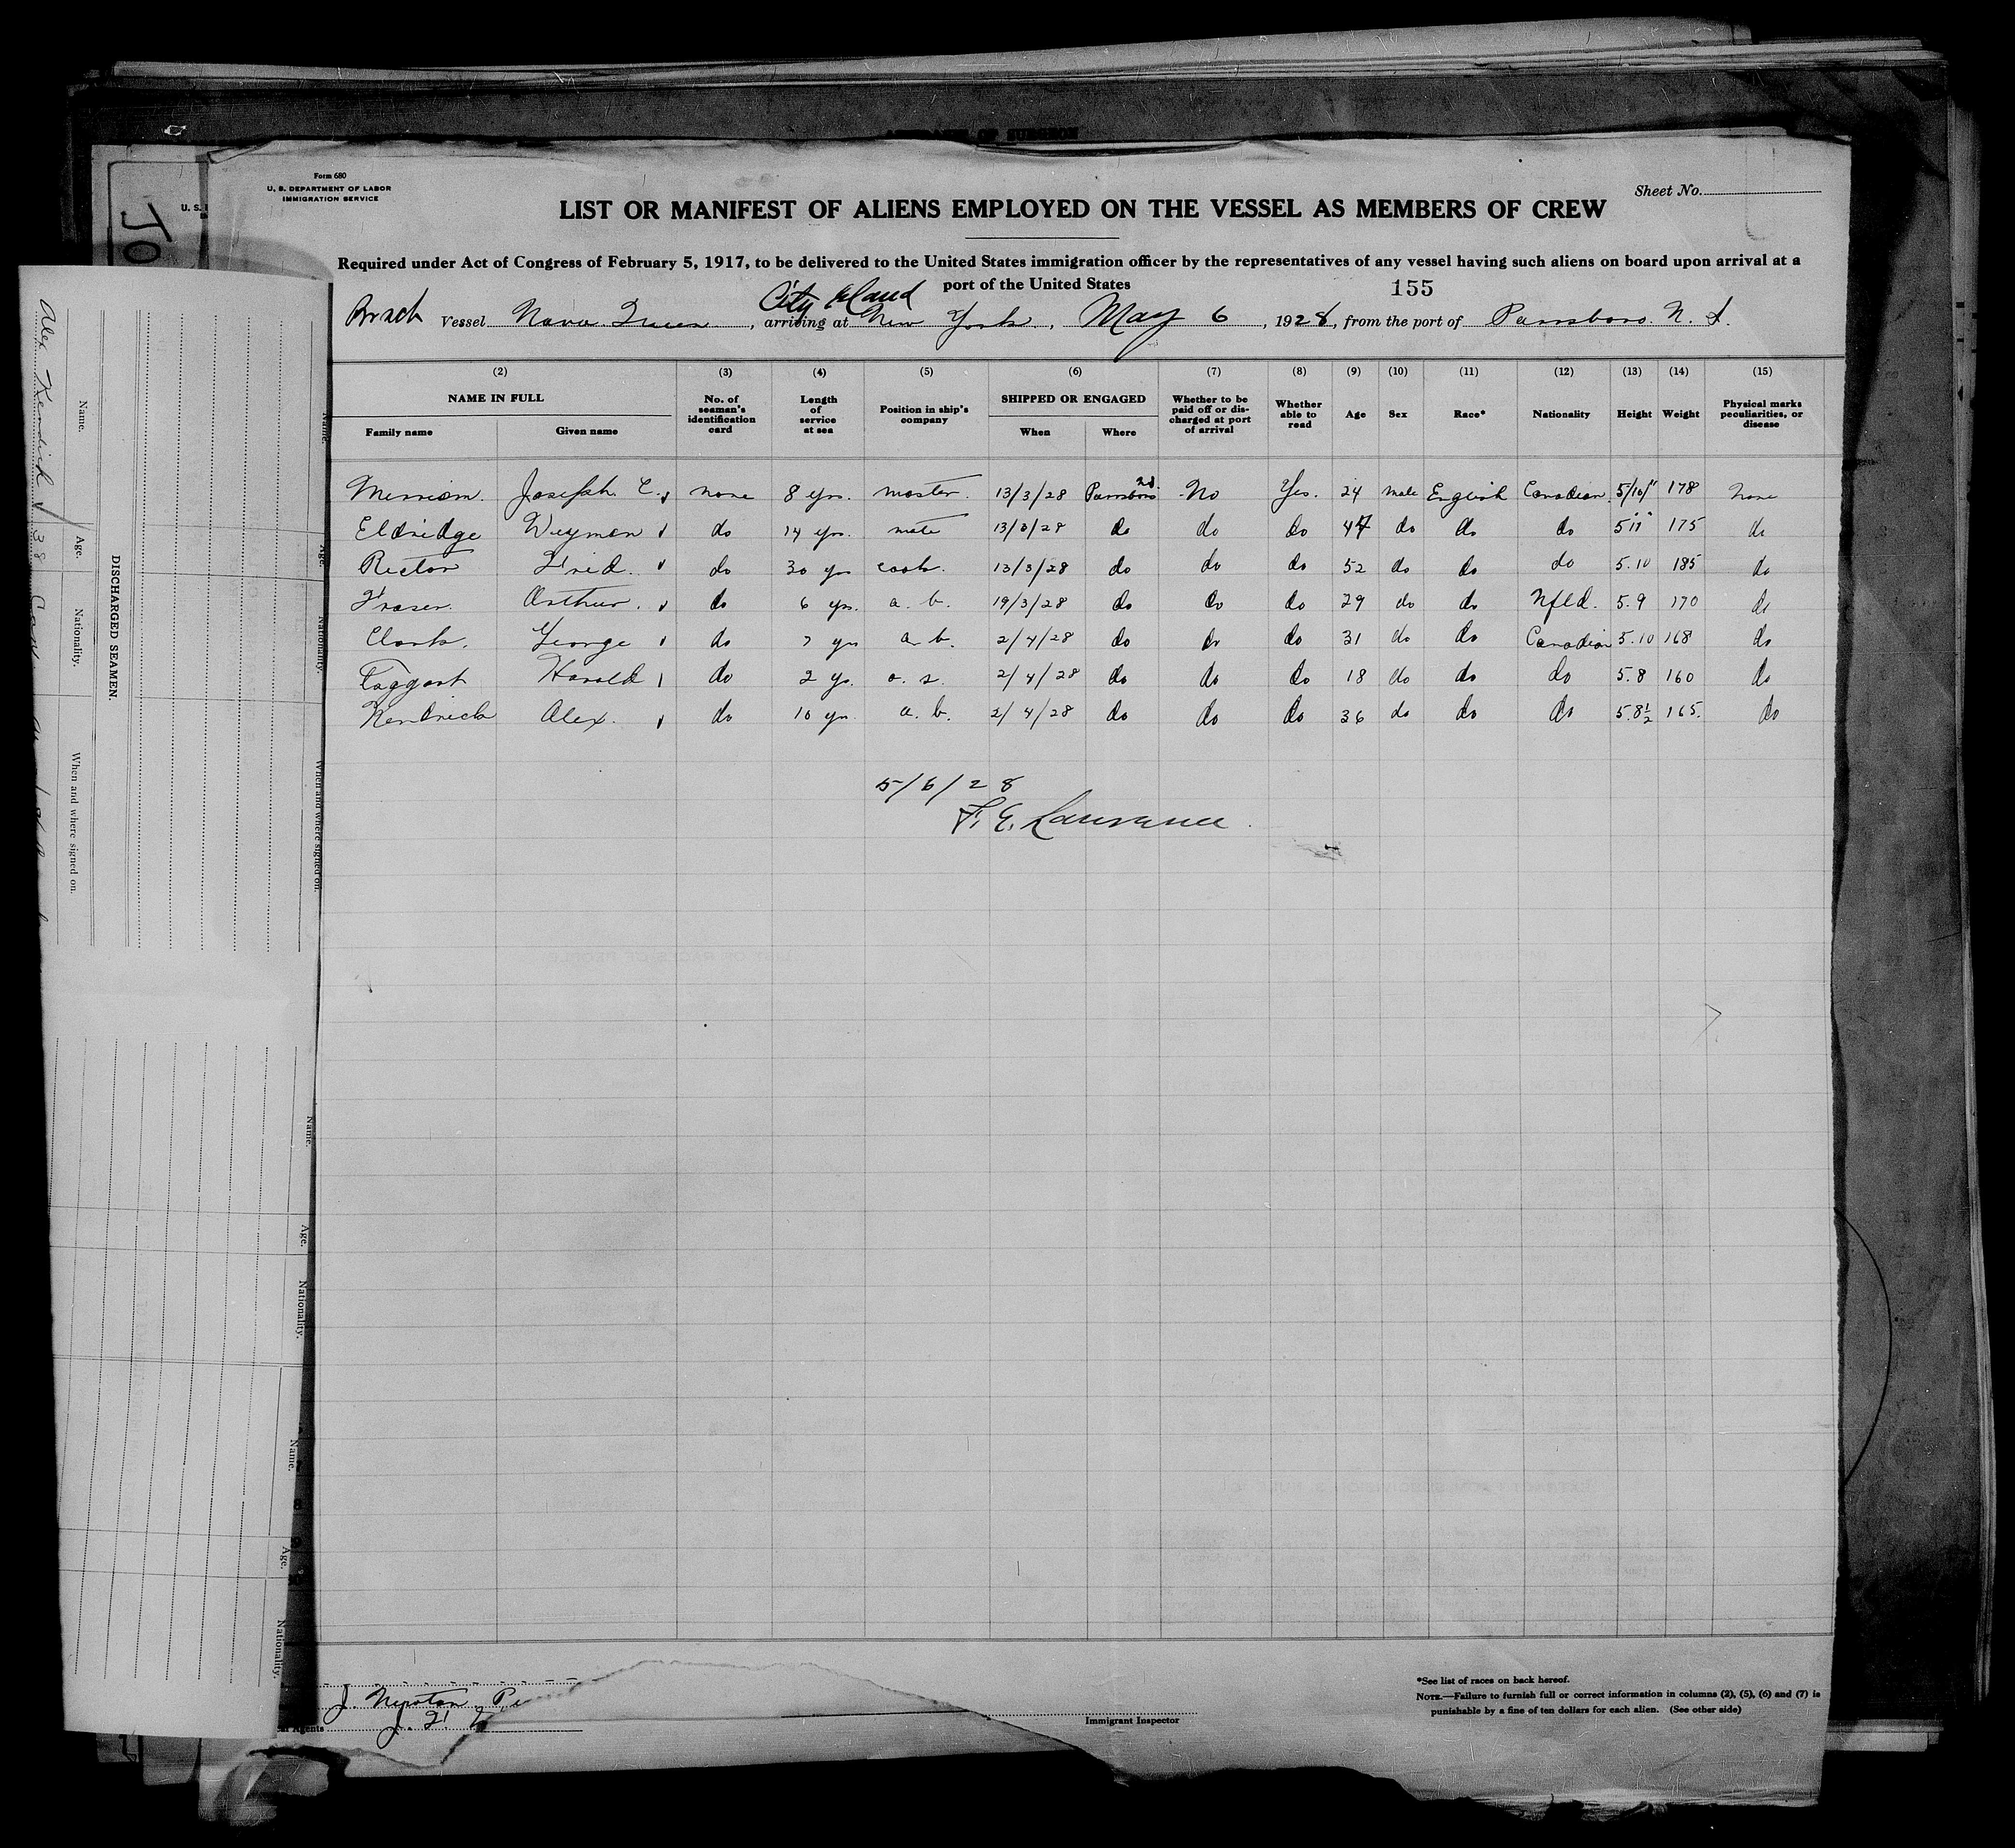 Form 680
U. S. DEPARTMENT OF LABOR
IMMIGRATION SERVICE
Sheet No.
LIST OR MANIFEST OF ALIENS EMPLOYED ON THE VESSEL AS MEMBERS OF CREW
Required under Act of Congress of February 5, 1917, to be delivered to the United States immigration officer by the representatives of any vessel having such aliens on board upon arrival at a
port of the United States
155
City Island
Vessel Nova Queen, arriving at New York, May 6, 1928, from the port of Parrsboro. N. S.
(2) (3) (4) (5) (6) (7) (8) (9) (10) (11) (12) (13) (14) (15)
NAME IN FULL
Family name Given name
No. of seaman's identification card
Length of service at sea
Position in ship's company
SHIPPED OR ENGAGED
When Where
Whether to be paid off or discharged at port of arrival
Whether able to read
Age
Sex
Race*
Nationality
Height
Weight
Physical marks peculiarities, or disease
Merriam. Joseph C. none 8 yrs. master. 13/3/28 Parrsboro NS. No Yes. 24 male English Canadian 5/10/" 178 None
Eldridge Weyman do 14 yrs. mate 13/3/28 do do do 47 do do do 5 11" 175 do
Rector Fred. do 30 yrs cook. 13/3/28 do do do 52 do do do 5.10 185 do
Fraser. Arthur. do 6 yrs. a. b. 19/3/28 do do do 29 do do Nfld. 5.9 170 do
Clark. George do 7 yrs a. b. 2/4/28 do do do 31 do do Canadian 5.10 168 do
Taggart Harold do 2 ys. o. s. 2/4/28 do do do 18 do do do 5.8 160 do
Kendrick Alex. do 10 yrs. a. b. 2/4/28 do do do 36 do do do 5.8½ 165. do
5/6/28
F. E. Lawrence
J. Newton
J. F.
Agents
Immigrant Inspector
*See list of races on back hereof.
NOTE.—Failure to furnish full or correct information in columns (2), (5), (6) and (7) is
punishable by a fine of ten dollars for each alien. (See other side)
DISCHARGED SEAMEN.
Name. Age. Nationality. When and where signed on.
Alex Kendrick 38
Name. Age. Nationality. When and where signed on.
Name. Age. Nationality.
Name. Age. Nationality.
JO
U. S.